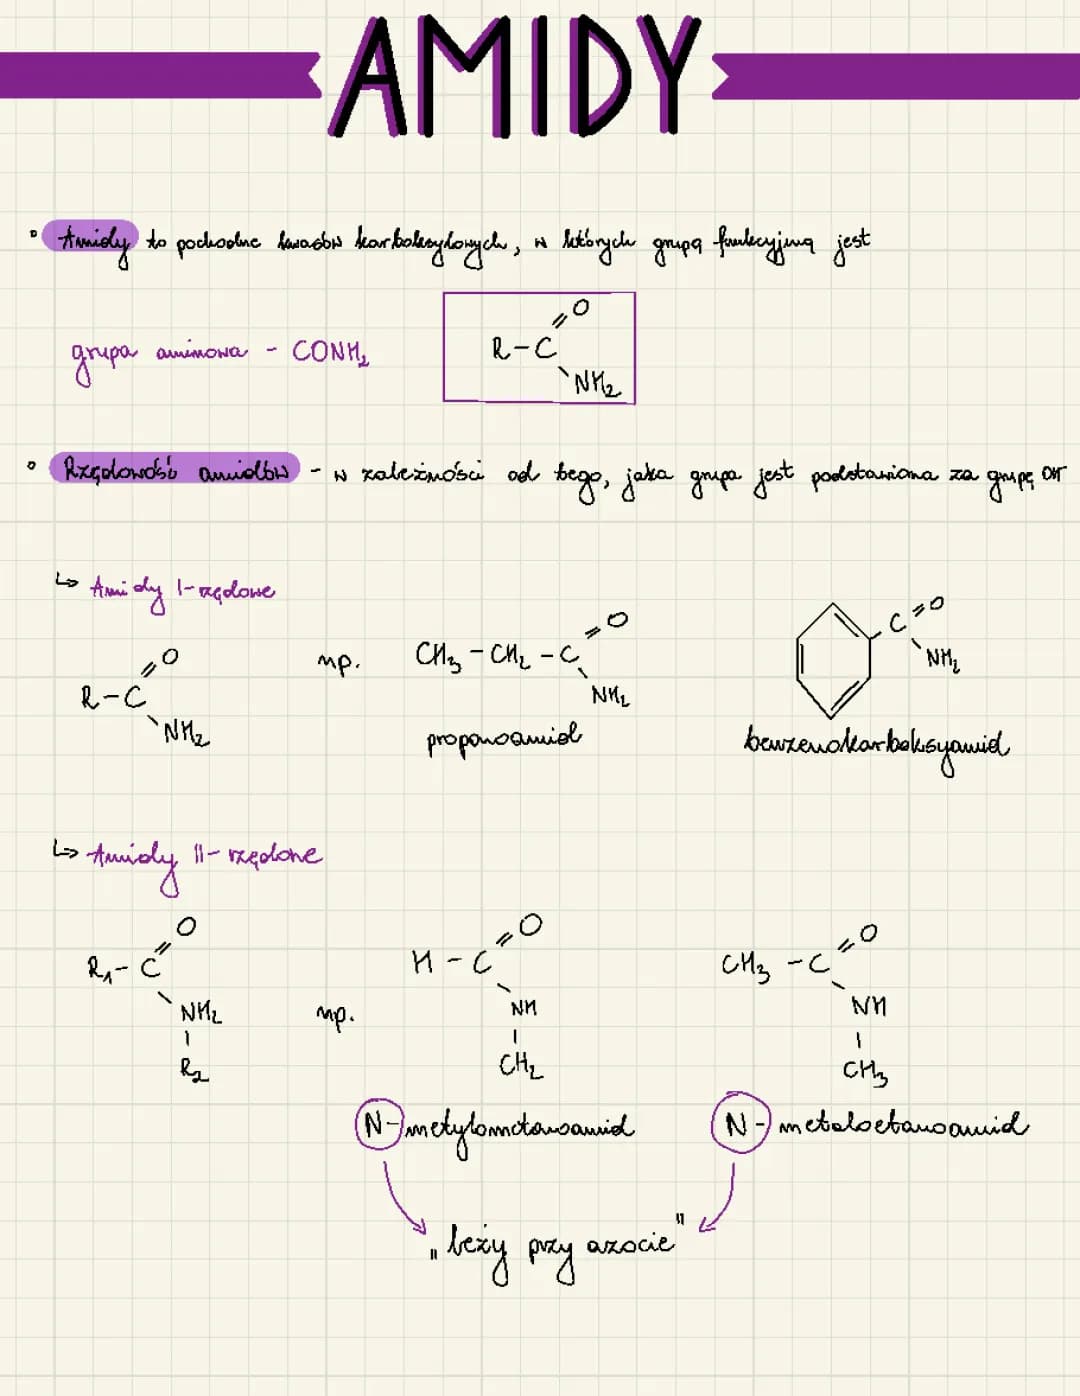 AMIDY
° Amidy to pochodne kwasów karboksylowych, w których grupą funkcyjną jest
grupa aminowa - CONH₂
O
R-C
NH₂
° Rzędowość amidów - w zależności od tego, jaka grupa jest podstawiona za grupę OH
↳ Amidy I-rzędowe
R-C
O
NH₂
np.
CH₃-CH₂-C
O
NH₂
propanoamid
C
O
NH₂
benzenokarboksyamid
↳ Amidy II-rzędowe
O
R₁-C
NH₂
R₂
np.
O
H-C
NH
CH₂
N-metylometanoamid
O
CH₃-C
NH
CH₃
N-metaloetanoamid
„leży przy azocie"